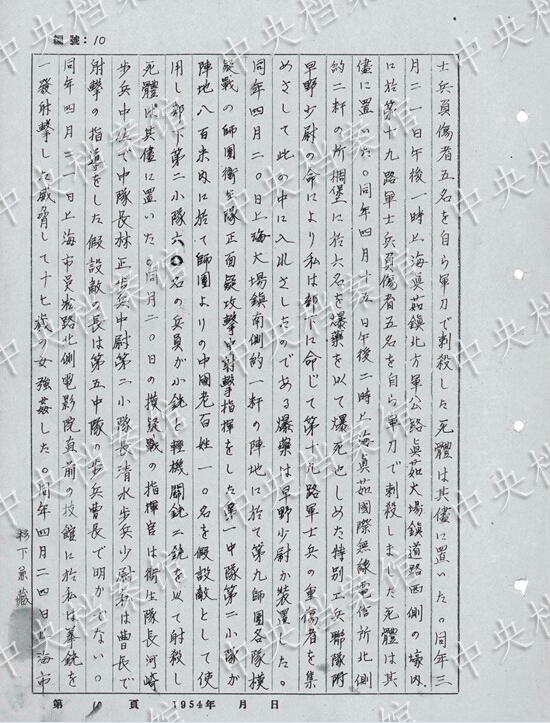 編號：10
士兵員傷者五名を自ら軍刀で刺殺した死體は其儘に置いた。同年三
月二一日午後一時上海眞茹鎮北方軍公路眞茹大場鎮道路西側の壕内
に於第十九路軍士兵員傷者五名を自ら軍刀で刺殺しました死體は其
儘に置いた。同年四月十五日午後二時上海眞茹國際無線電信所北側
約二粁の所掩堡に於六名を爆藥を以て爆死せしめた特別工兵聯隊附
早野少尉の命により私は部下に命じて第十九路軍士兵の重傷者を集
めさして此の中に入れさしたのである爆藥は早野少尉が装置した。
同年四月二〇日上海大場鎮南側約一粁の陣地に於て第九師團各隊模
疑戰の師團衛生隊正面疑攻擊中射擊指揮をした第一中隊第二小隊が
陣地八百米内に於て師團よりの中國老百姓一〇名を假設敵として使
用し部下第二小隊六〇名の兵員が小銃と輕機關銃二銃を以て射殺し
死體は其儘に置いた。同月二〇日の模疑戰の指揮官は衛生隊長河崎
步兵中佐で中隊長林正步兵中尉第二小隊長清水步兵少尉私は曹長で
射擊の指導をした假設敵の長は第五中隊の步兵曹長で明かでない。
同年四月二一日上海市吳淞路北側電影院直前の旅館に於私は拳銃を
一發射擊した威脅して十七歲の女強姦した。同年四月二四日上海市
杉下兼藏
第 10 頁 1954年 月 日
中央档案馆